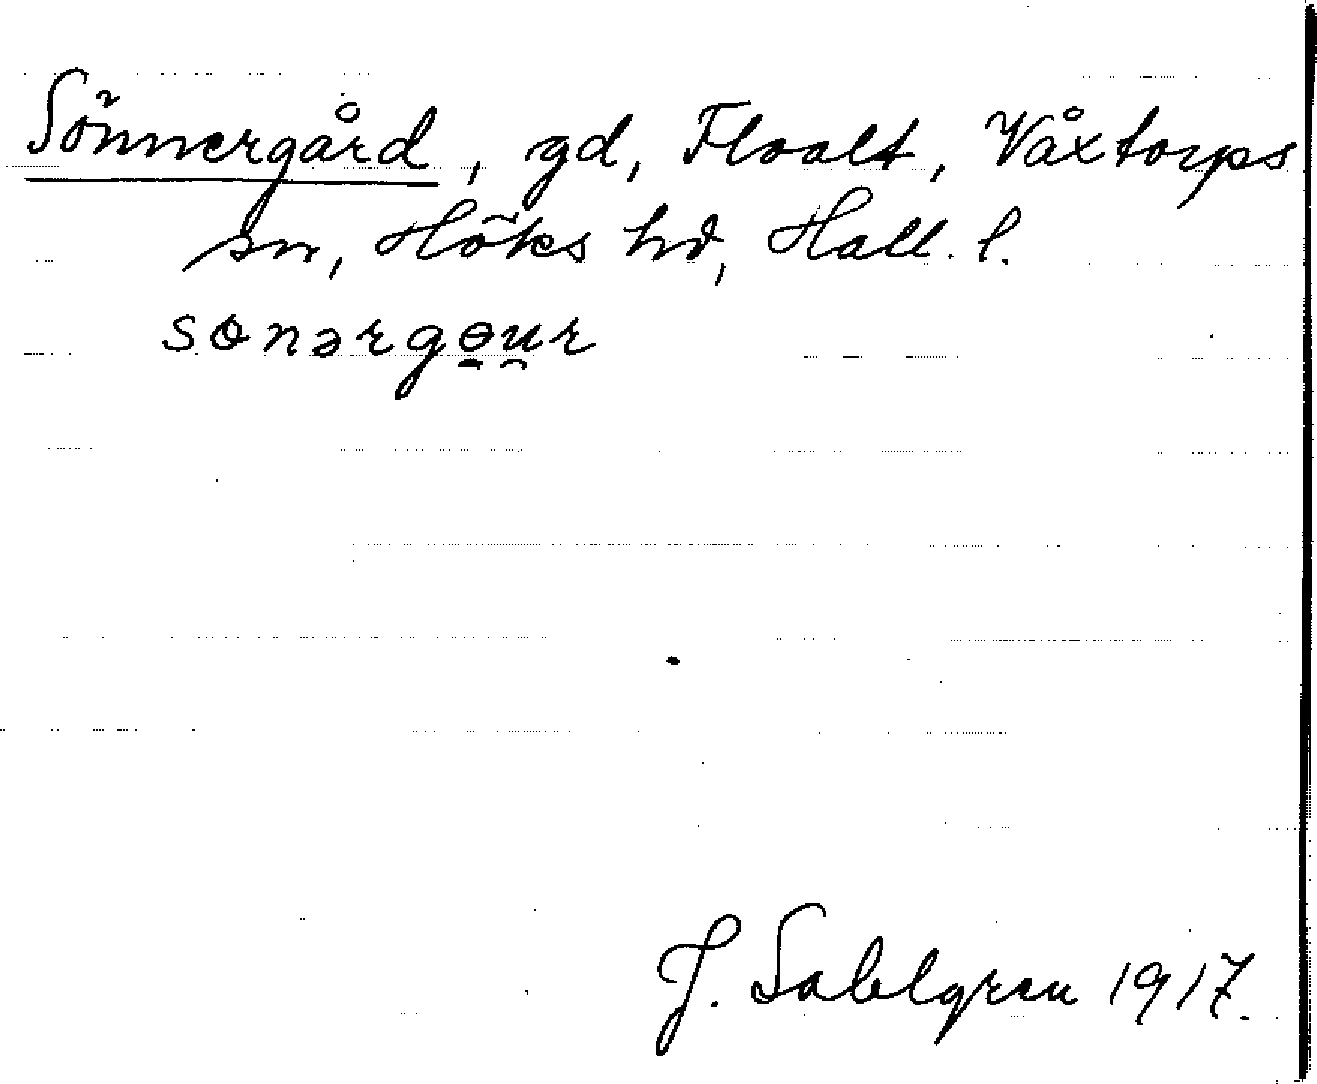 Sönnergård, gd, Floalt, Våxtorps
sn, Höks hd, Hall. l.
sɵnərgɵu̯r
J. Sahlgren 1917.